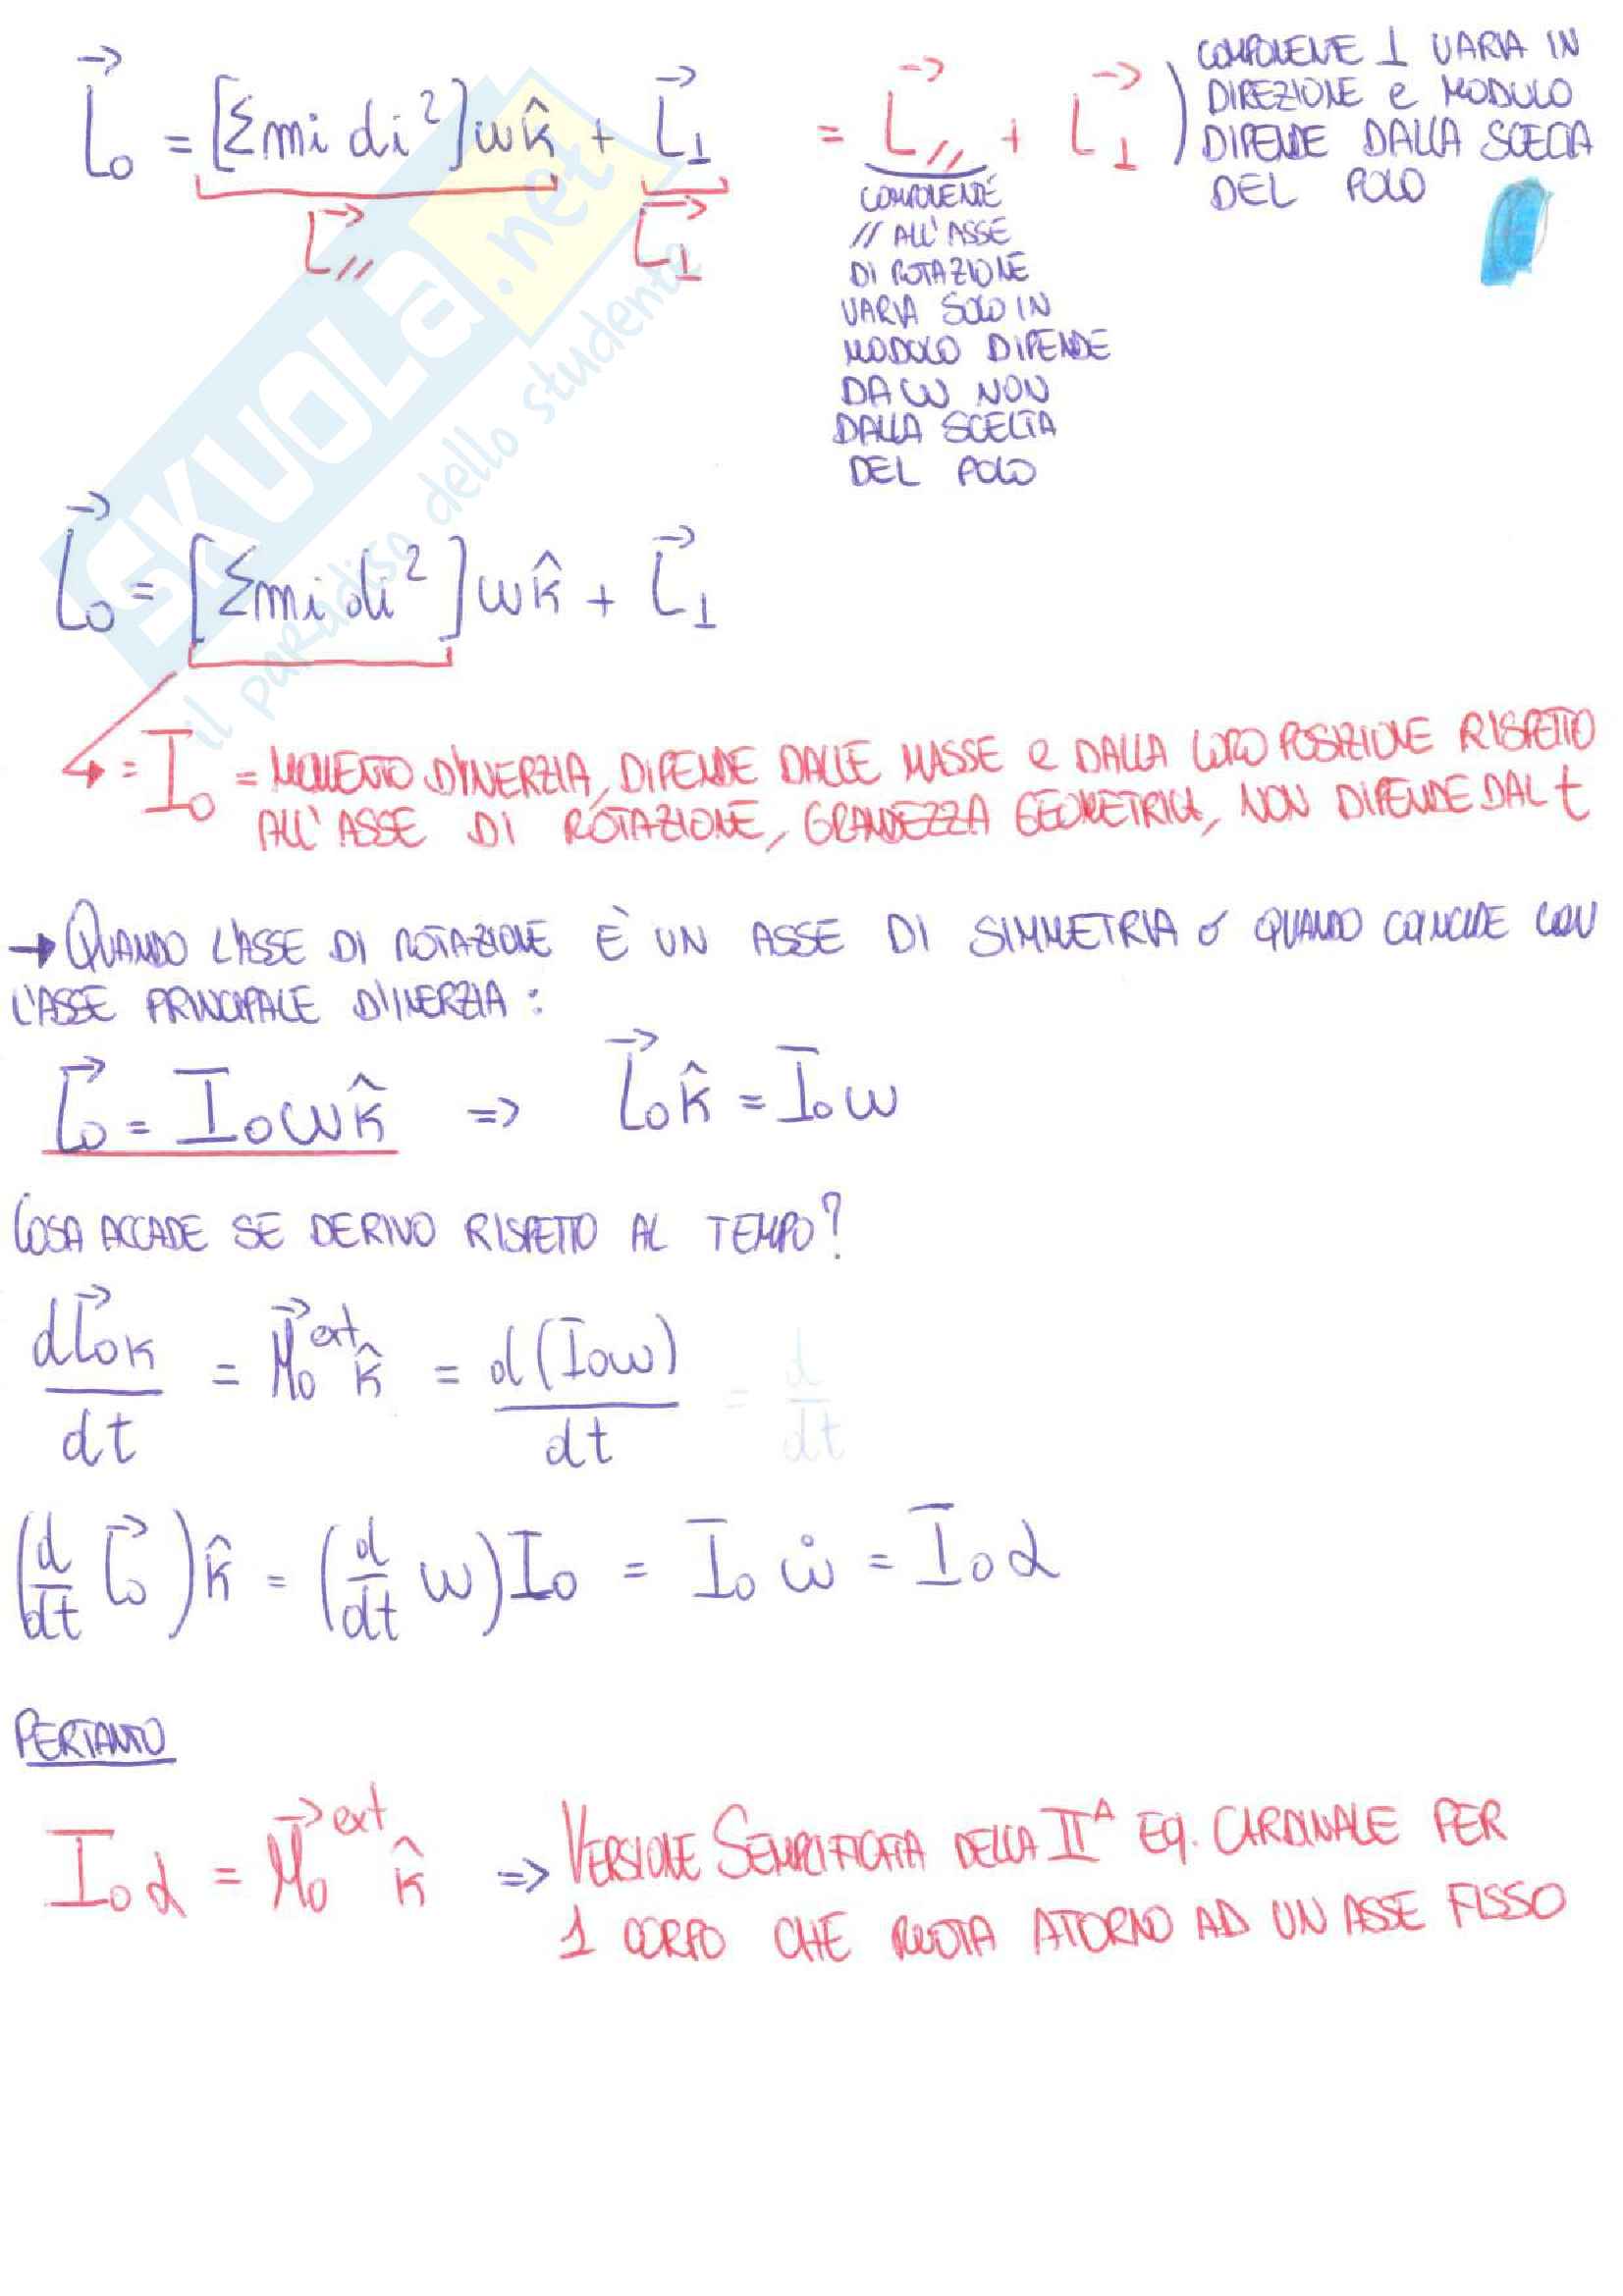 L⃗o = [Σmi di²]ωk̂ + L⃗⊥ = L⃗// + L⃗⊥
L⃗// L⃗⊥
COMPONENTE ⊥ VARIA IN
DIREZIONE e MODULO
DIPENDE DALLA SCELTA
DEL POLO
COMPONENTE
// ALL'ASSE
DI ROTAZIONE
VARIA SOLO IN
MODULO DIPENDE
DA ω NON
DALLA SCELTA
DEL POLO
SKUOLA.net
il paradiso dello studente
L⃗o = [Σmi di²]ωk̂ + L⃗⊥
= Io = MOMENTO D'INERZIA, DIPENDE DALLE MASSE e DALLA LORO POSIZIONE RISPETTO
ALL'ASSE DI ROTAZIONE, GRANDEZZA GEOMETRICA, NON DIPENDE DAL t
→ QUANDO L'ASSE DI ROTAZIONE È UN ASSE DI SIMMETRIA o QUANDO COINCIDE CON
L'ASSE PRINCIPALE D'INERZIA:
L⃗o = Ioωk̂ => L⃗o k̂ = Ioω
COSA ACCADE SE DERIVO RISPETTO AL TEMPO?
dL⃗ok/dt = M⃗o^ext k̂ = d(Ioω)/dt = d/dt
(d/dt L⃗o)k̂ = (d/dt ω)Io = Io ω̇ = Io α
PERTANTO
Io α = M⃗o^ext k̂ => VERSIONE SEMPLIFICATA DELLA IIᴬ EQ. CARDINALE PER
1 CORPO CHE RUOTA ATORNO AD UN ASSE FISSO